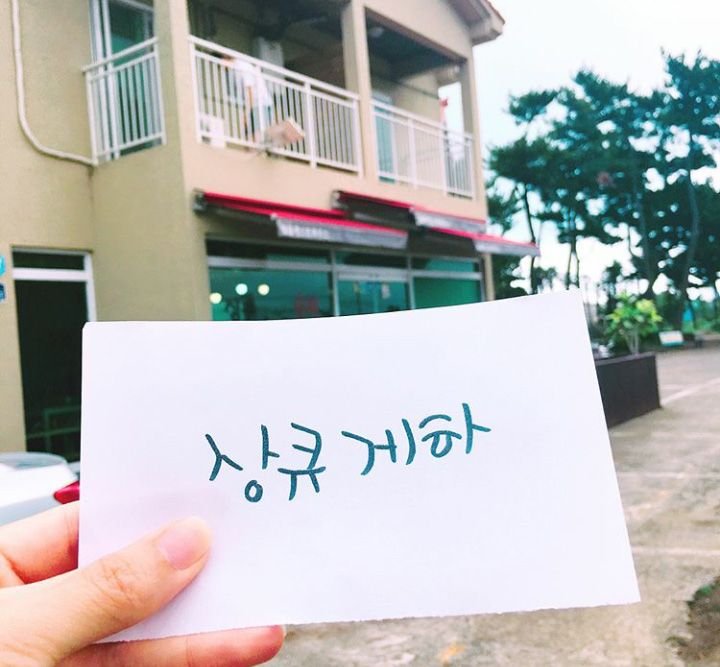 상큐 게하